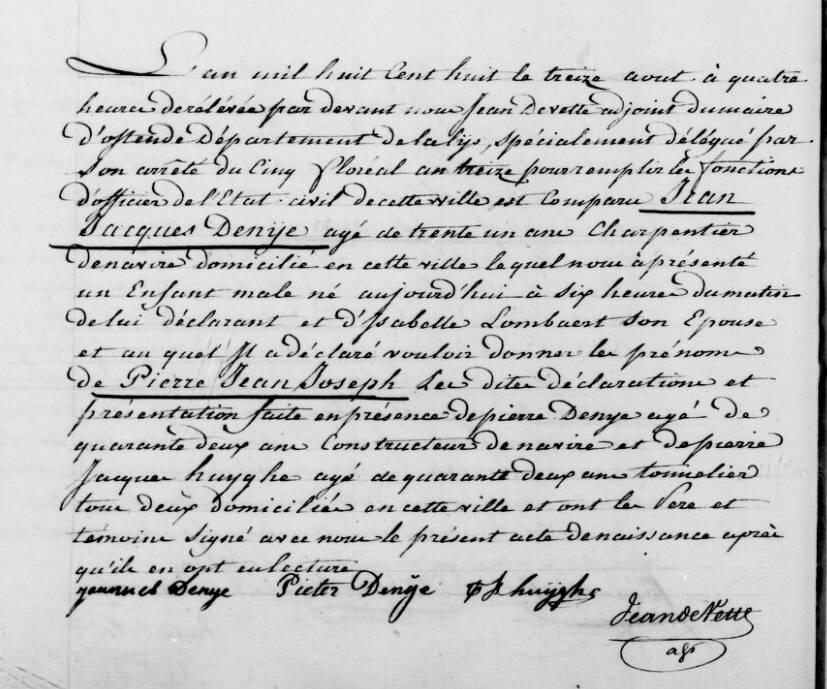 L'an mil huit Cent huit le treize aout à quatre
heures de rélévée par devant nous Jean Devette adjoint du maire
d'ostende Département de la lys, spécialement délégué par
son arrêté du Cinq floréal an treize pour remplir les fonctions
d'officier de l'Etat civil de cette ville est Comparu Jean
Jacques Denÿe agé de trente un ans Charpentier
de navire domicilié en cette ville lequel nous à présenté
un Enfant male né aujourd'hui à six heures du matin
de lui déclarant et d'Isabelle Lombaert son Epouse
et au quel Il a déclaré vouloir donner les prénoms
de Pierre Jean Joseph Les dites déclarations et
présentation faite en présence de pierre Denye agé de
quarante deux ans Constructeur de navires et de pierre
Jacques huyghe agé de quarante deux ans tonnelier
tous deux domiciliés en cette ville et ont les Pere et
témoins signé avec nous le présent acte de naissance après
qu'ils en ont eu lecture
Joannes Denye Pieter Denÿe PJ huÿghe
Jean de Vette